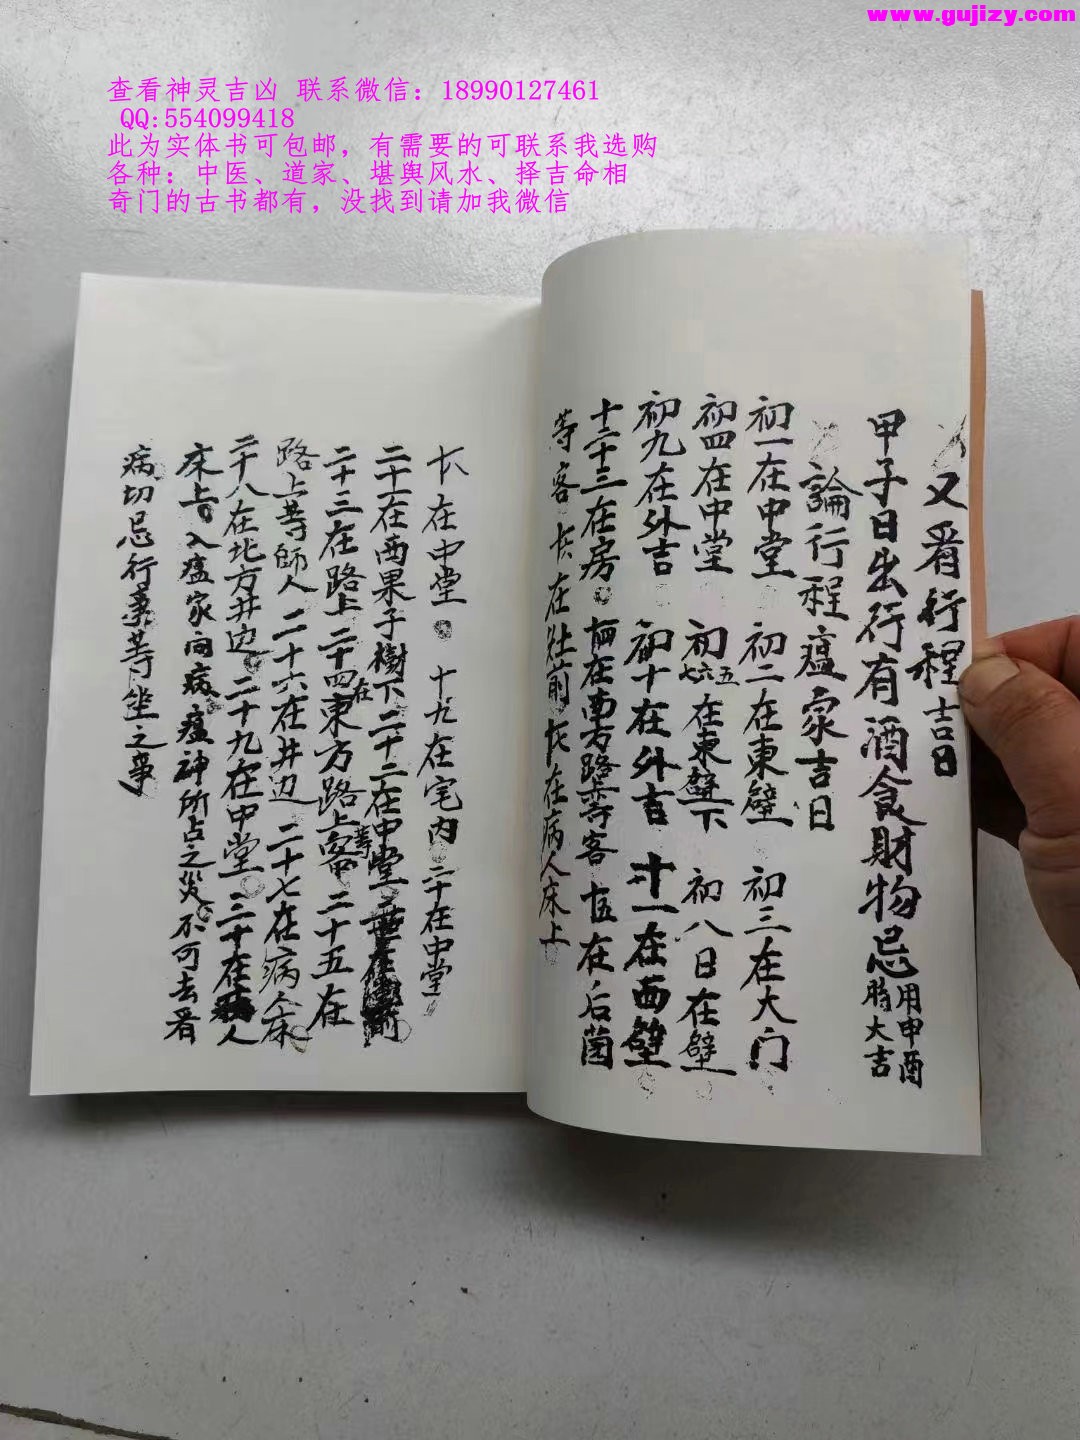 www.gujizy.com
查看神灵吉凶 联系微信：18990127461
QQ:554099418
此为实体书可包邮，有需要的可联系我选购
各种：中医、道家、堪舆风水、择吉命相
奇门的古书都有，没找到请加我微信
又看行程吉日
甲子日出行有酒食財物忌用申酉時大吉
論行程瘟家吉日
初一在中堂 初二在東壁 初三在大门
初四在中堂 初五六七在東壁下 初八日在壁
初九在外吉 初十在外吉 十一在西壁
十二十三在房。 在南方路等客 十五在后园
等客 在灶前 在病人床上
十八在中堂。十九在宅内 二十在中堂
二十一在西果子樹下 二十二在中堂
二十三在路上 二十四在東方路上等客 二十五在
路上等師人 二十六在井边 二十七在病人床
二十八在北方井边。二十九在中堂。三十在病人
床上。入瘟家问病瘟神所占之災不可去看
病切忌行事等坐之事